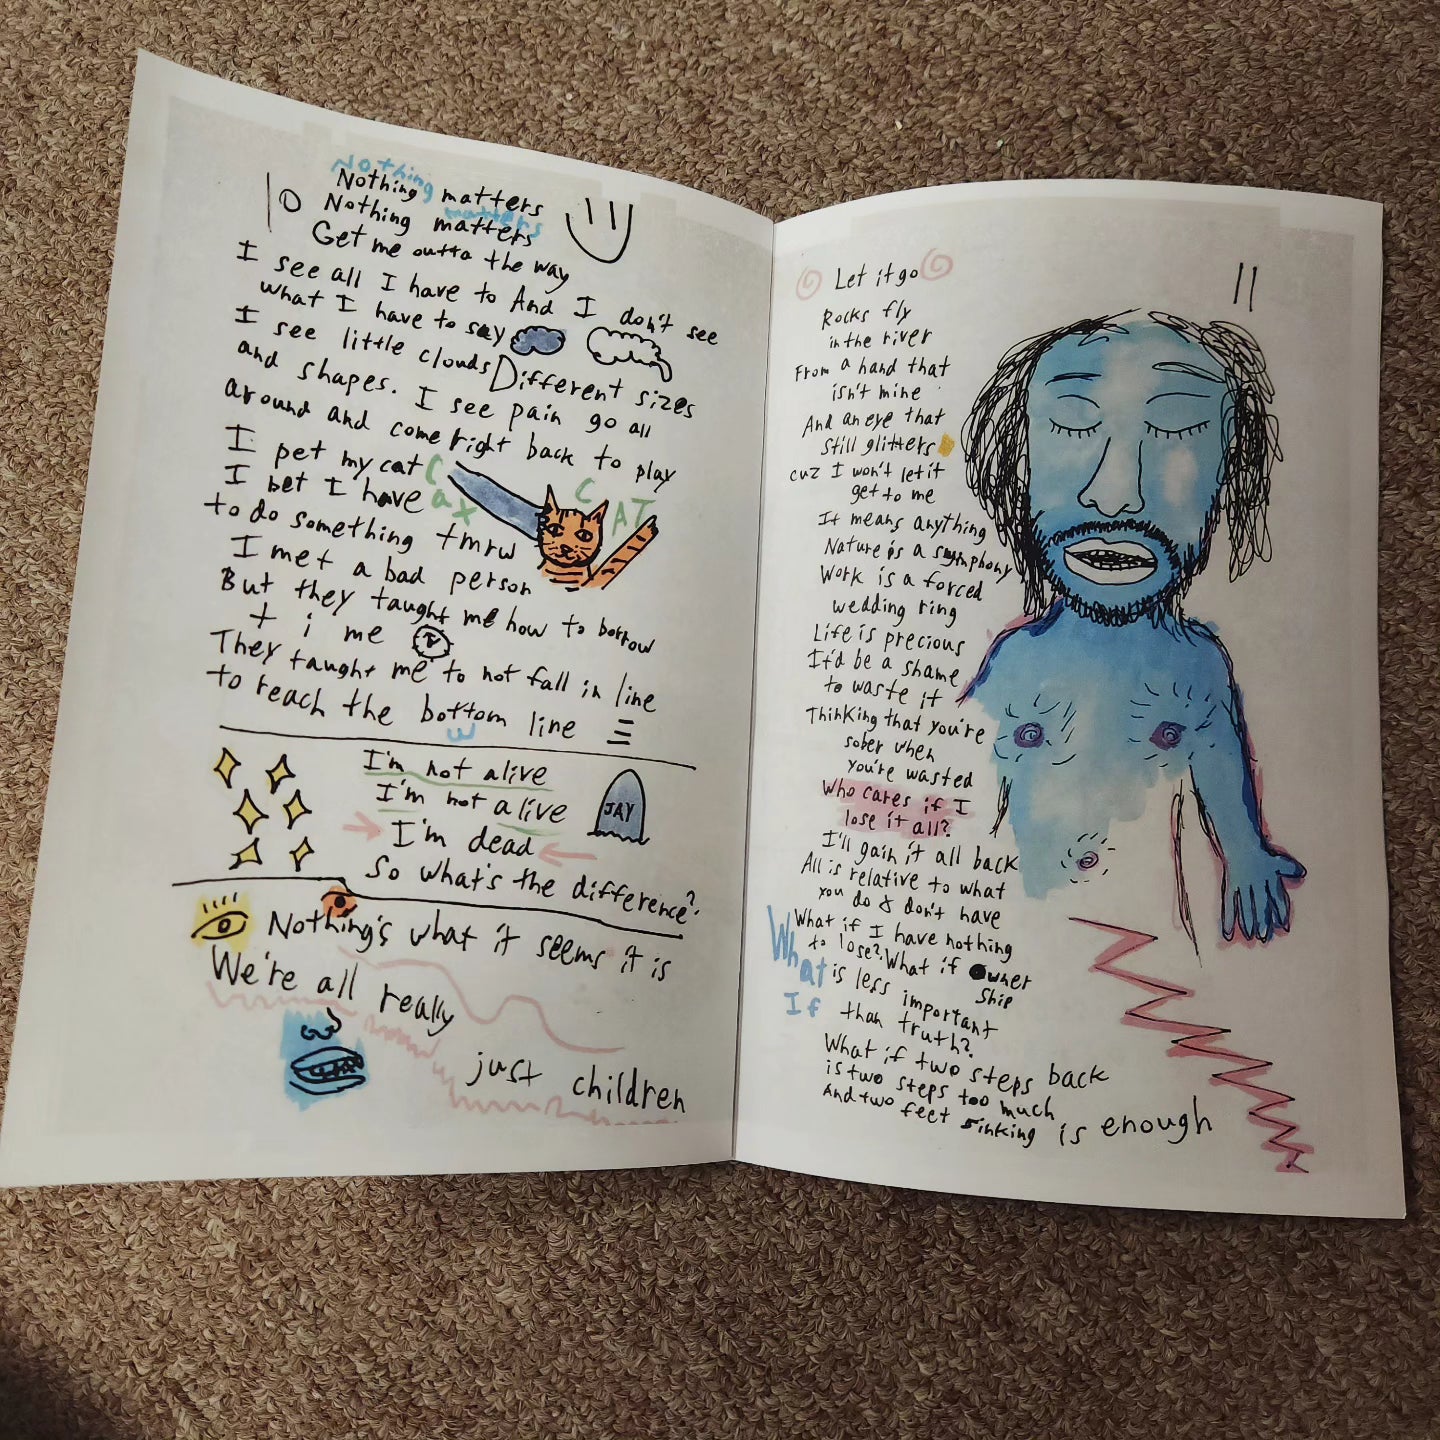 10
Nothing
Nothing matters
matters
Nothing matters
Get me outta the way
I see all I have to And I don't see
what I have to say
I see little clouds Different sizes
and shapes. I see pain go all
around and come right back to play
I pet my cat
Cax
CAT
I bet I have
to do something tmrw
I met a bad person
But they taught me how to borrow
t i me
They taught me to not fall in line
to reach the bottom line
I'm not alive
I'm not alive
JAY
I'm dead
So what's the difference?
Nothing's what it seems it is
We're all really
just children
11
Let it go
Rocks fly
in the river
From a hand that
isn't mine
And an eye that
still glitters
cuz I won't let it
get to me
It means anything
Nature is a symphony
Work is a forced
wedding ring
Life is precious
It'd be a shame
to waste it
Thinking that you're
sober when
you're wasted
Who cares if I
lose it all?
I'll gain it all back
All is relative to what
you do & don't have
What if I have nothing
to lose? What if owner
ship
is less important
than truth?
What
If
What if two steps back
is two steps too much
And two feet sinking is enough